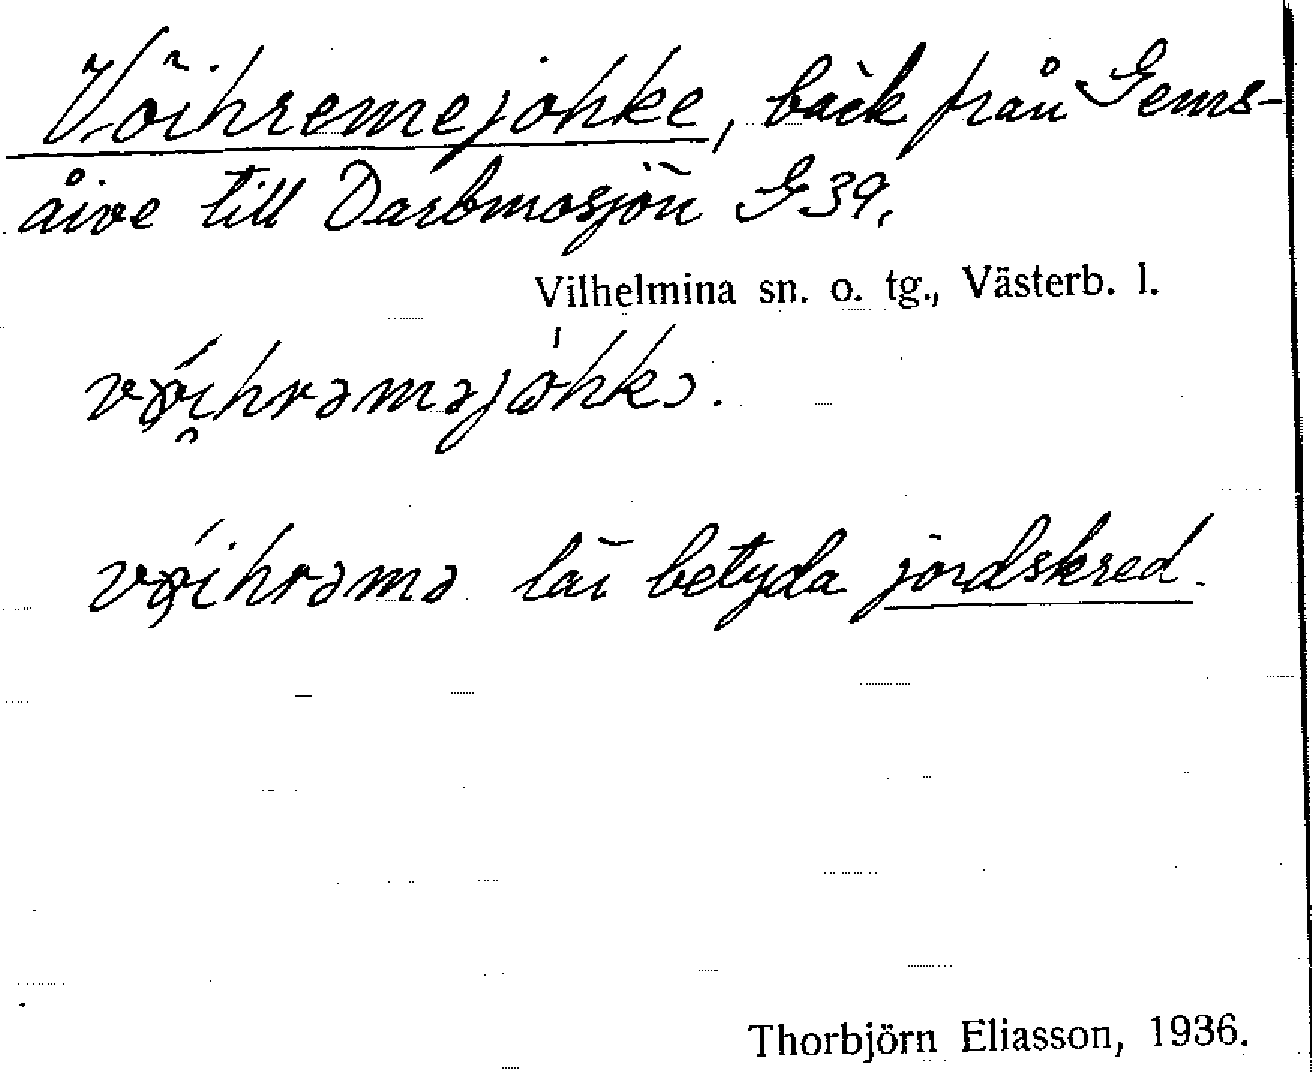 Vöihremejohke, bäck från Gems-
åive till Darbmosjön G39.
Vilhelmina sn. o. tg., Västerb. l.
vǫ́i̯hrəməjȯhkə.
vǫ́ihrəmə lär betyda jordskred.
Thorbjörn Eliasson, 1936.